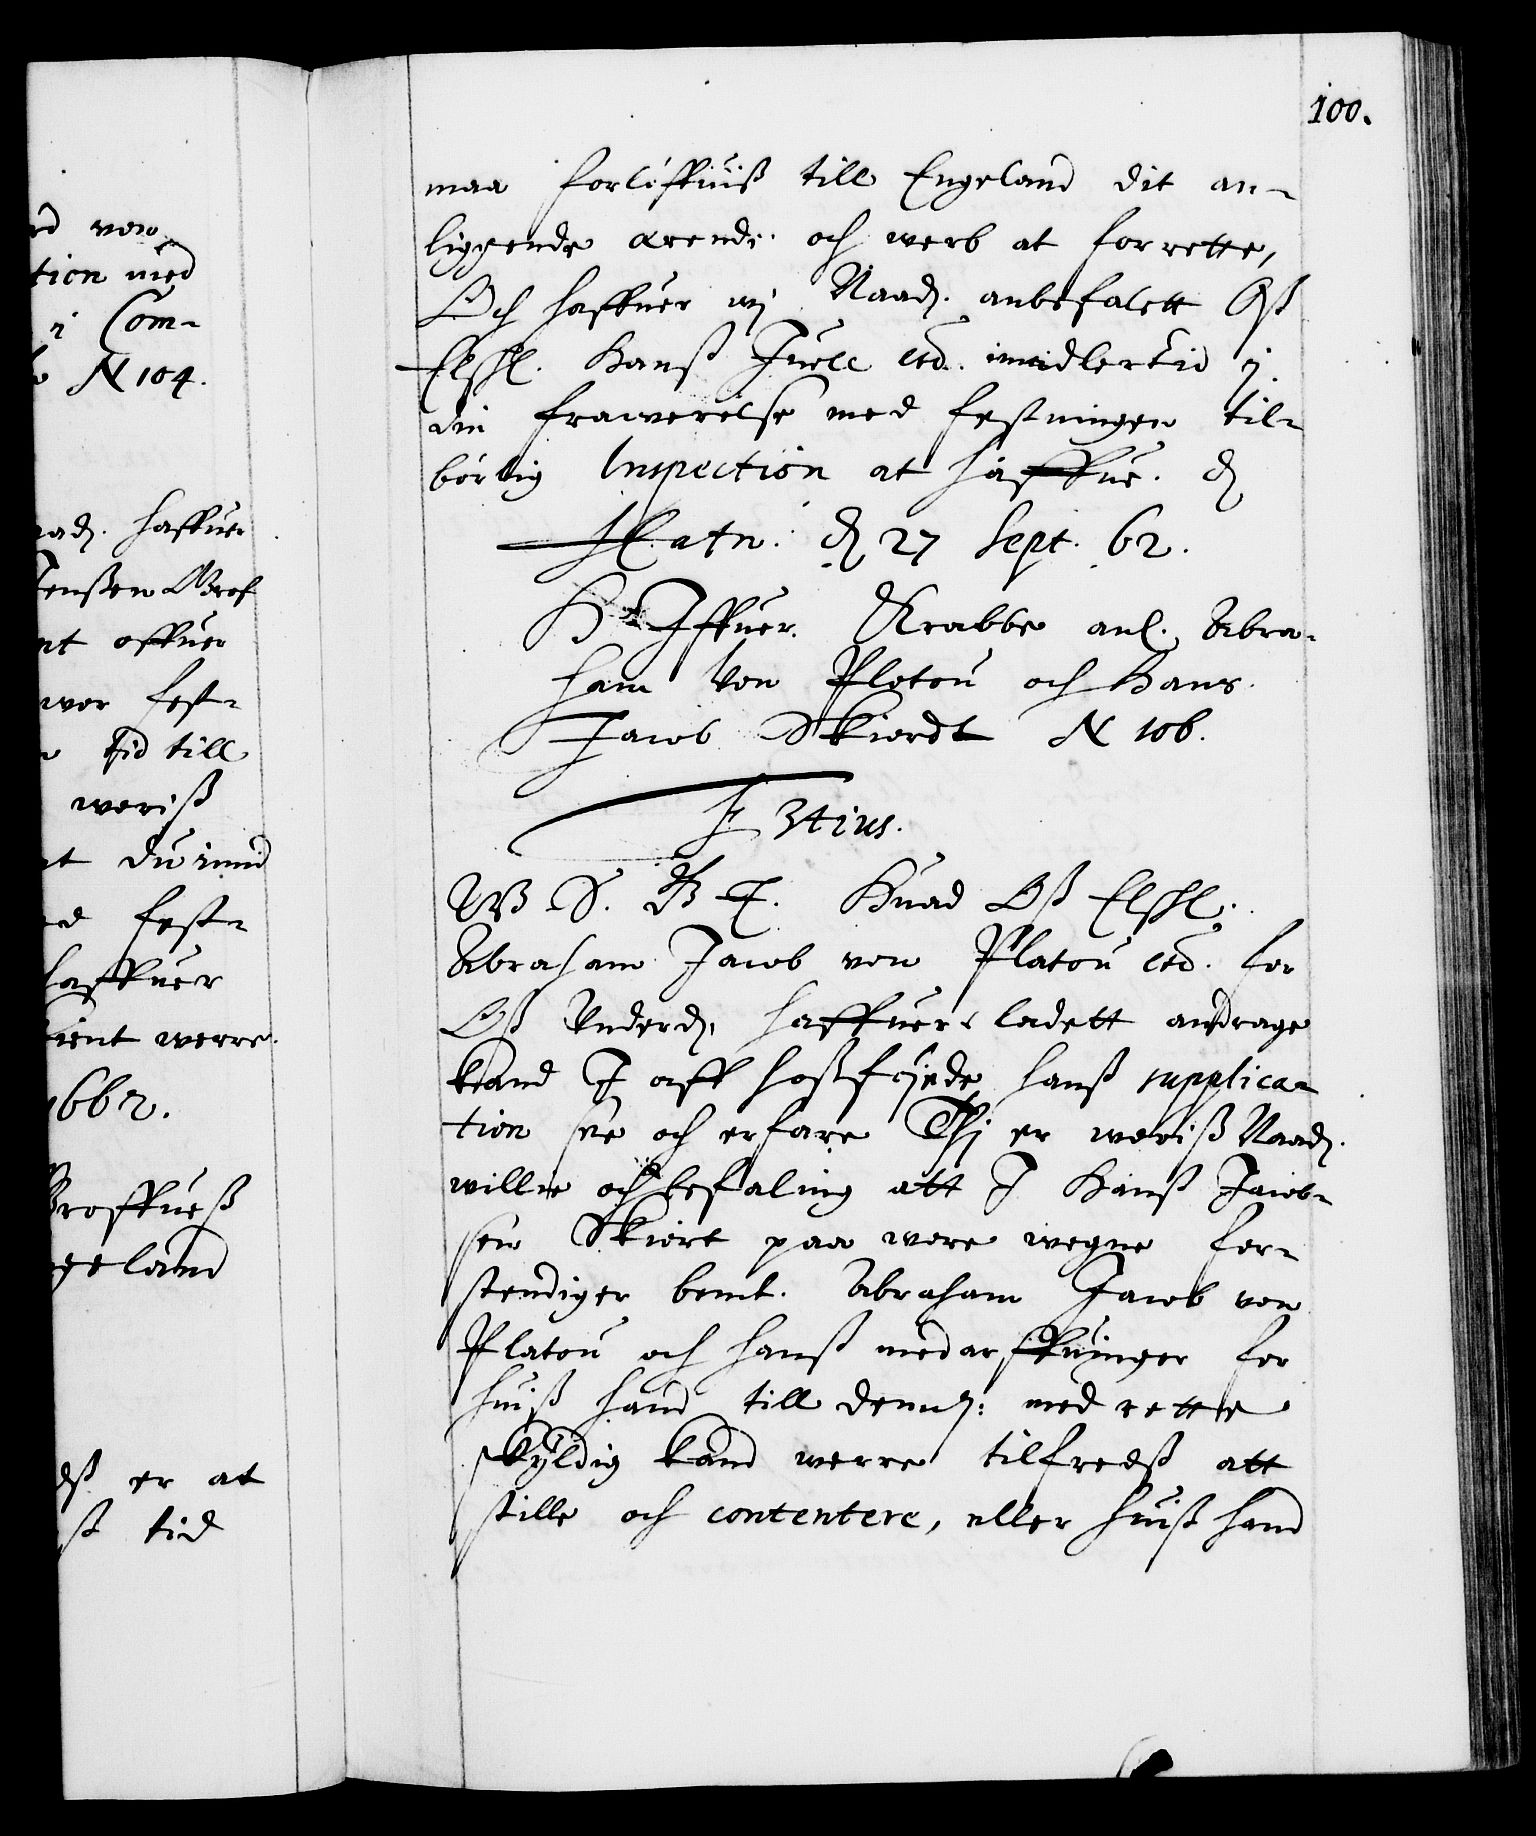 100.
rd von
tion med
i Com-
N 104.
aadh. haffuer
Jenßen Grof
nt offuer
wor fest-
tid till
weriß
nt du imid
ed fest-
haffuer
tient werre.
1662.
Groffueß
geland
dß er at
ß tid
maa forløffuiß till Engeland dit an-
liggendeærende och werb at forrette,
Och haffuer wj Naadh. anbefalett Oß
Elshl. Hanß Juell etc. imidlertid j
din frawerelse med festningen til-
børlig Inspection at haffue. d
Hafn. d 27 Sept. 62.
Hr Iffuer Krabbe anl. Abra-
ham von Platou och Hans
Jacob Skiordt N 106.
F 3tius.
W S. G T. Huad Oß Elshl.
Abraham Jacob von Platou etc. for
Oß Underd. haffuer ladett andrage
kand I aff hoßføjede hanß supplica-
tion see och erfare Thj er woriß Naadh.
willie och befaling att I Hanß Jacob-
sen Skiort paa wore wegne for-
stendiger bemt. Abraham Jacob von
Platou och hanß medarffuinger for
huiß hand till dennem med rette
skyldig kand werre tilfredß att
stille och contentere, eller huiß hand